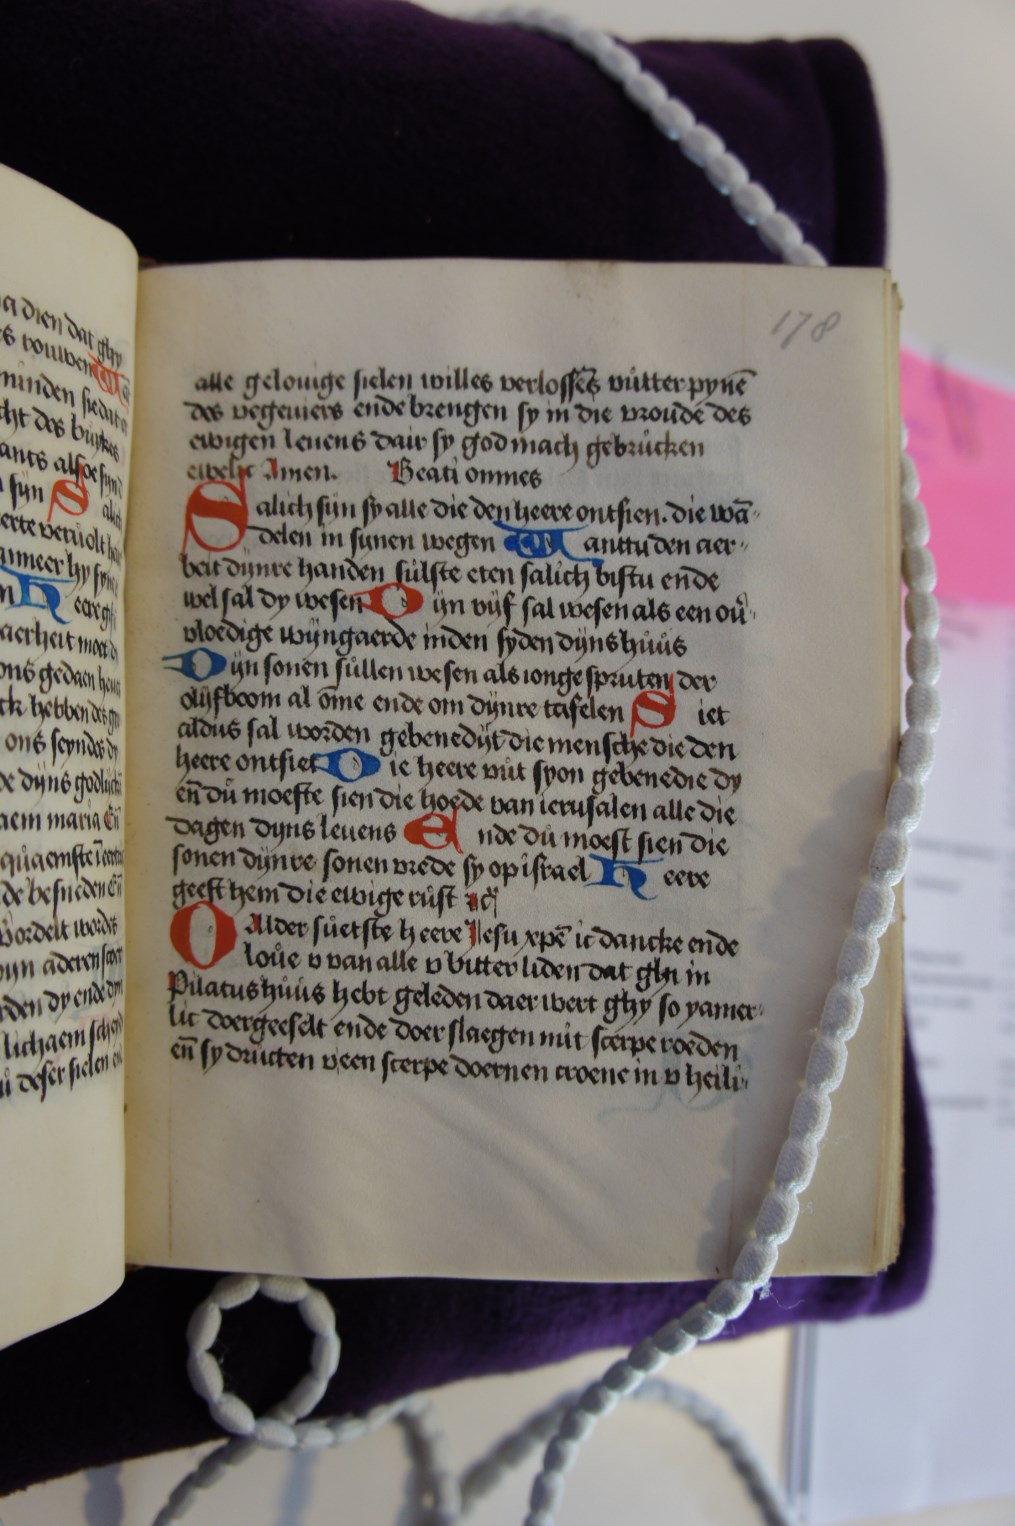 a dien dat ghy
es vouwen
minden sie dat
cht des buykes
ants alsoe syn
syn S alich
erte veruolt
anneer hy syn
n Heere
aerheit moet
ons gedaen
ck hebben des
ons seyndes dy
de dijns godlich
aem maria Eñ
de besneden Eñ
oordelt wordet
yn aderen
rden dy ende dyn
lichaem
deser sielen
178
alle gelouige sielen willes verlossēs vůtter pynē
des vegeuiers ende brengen sy in die vroude des
ewigen leuens dair sy god mach gebrůcken
ewelic Amen. Beati omnes
Salich sijn sy alle die den heere ontsien. die wā-
delen in synen wegen Wanttu den aer-
beit dijnre handen sůlste eten salich bistu ende
wel sal dy wesen Dijn wijf sal wesen als een ou̇-
vloedige wijngaerde inden syden dijns hůůs
Dijn sonen sůllen wesen als ionge spruten der
olijfboom al ōme ende om dijnre tafelen Siet
aldus sal worden gebenedijt die mensche die den
heere ontsiet Die heere vůt syon gebenedie dy
eñ dů moeste sien die hoede van ierusalen alle die
dagen dijns leuens Ende dů moest sien die
sonen dijnre sonen vrede sy op israel Heere
geeft hem die ewige růst
O Alder sůetste heere Jesu xpē ic dancke ende
loůe v van alle v bitter liden dat ghy in
Pilatus hůůs hebt geleden daer wert ghy so yamer-
lic doergeeselt ende doer slaegen mit scerpe roeden
eñ sy dructen v een scerpe doernen croene in v heili-